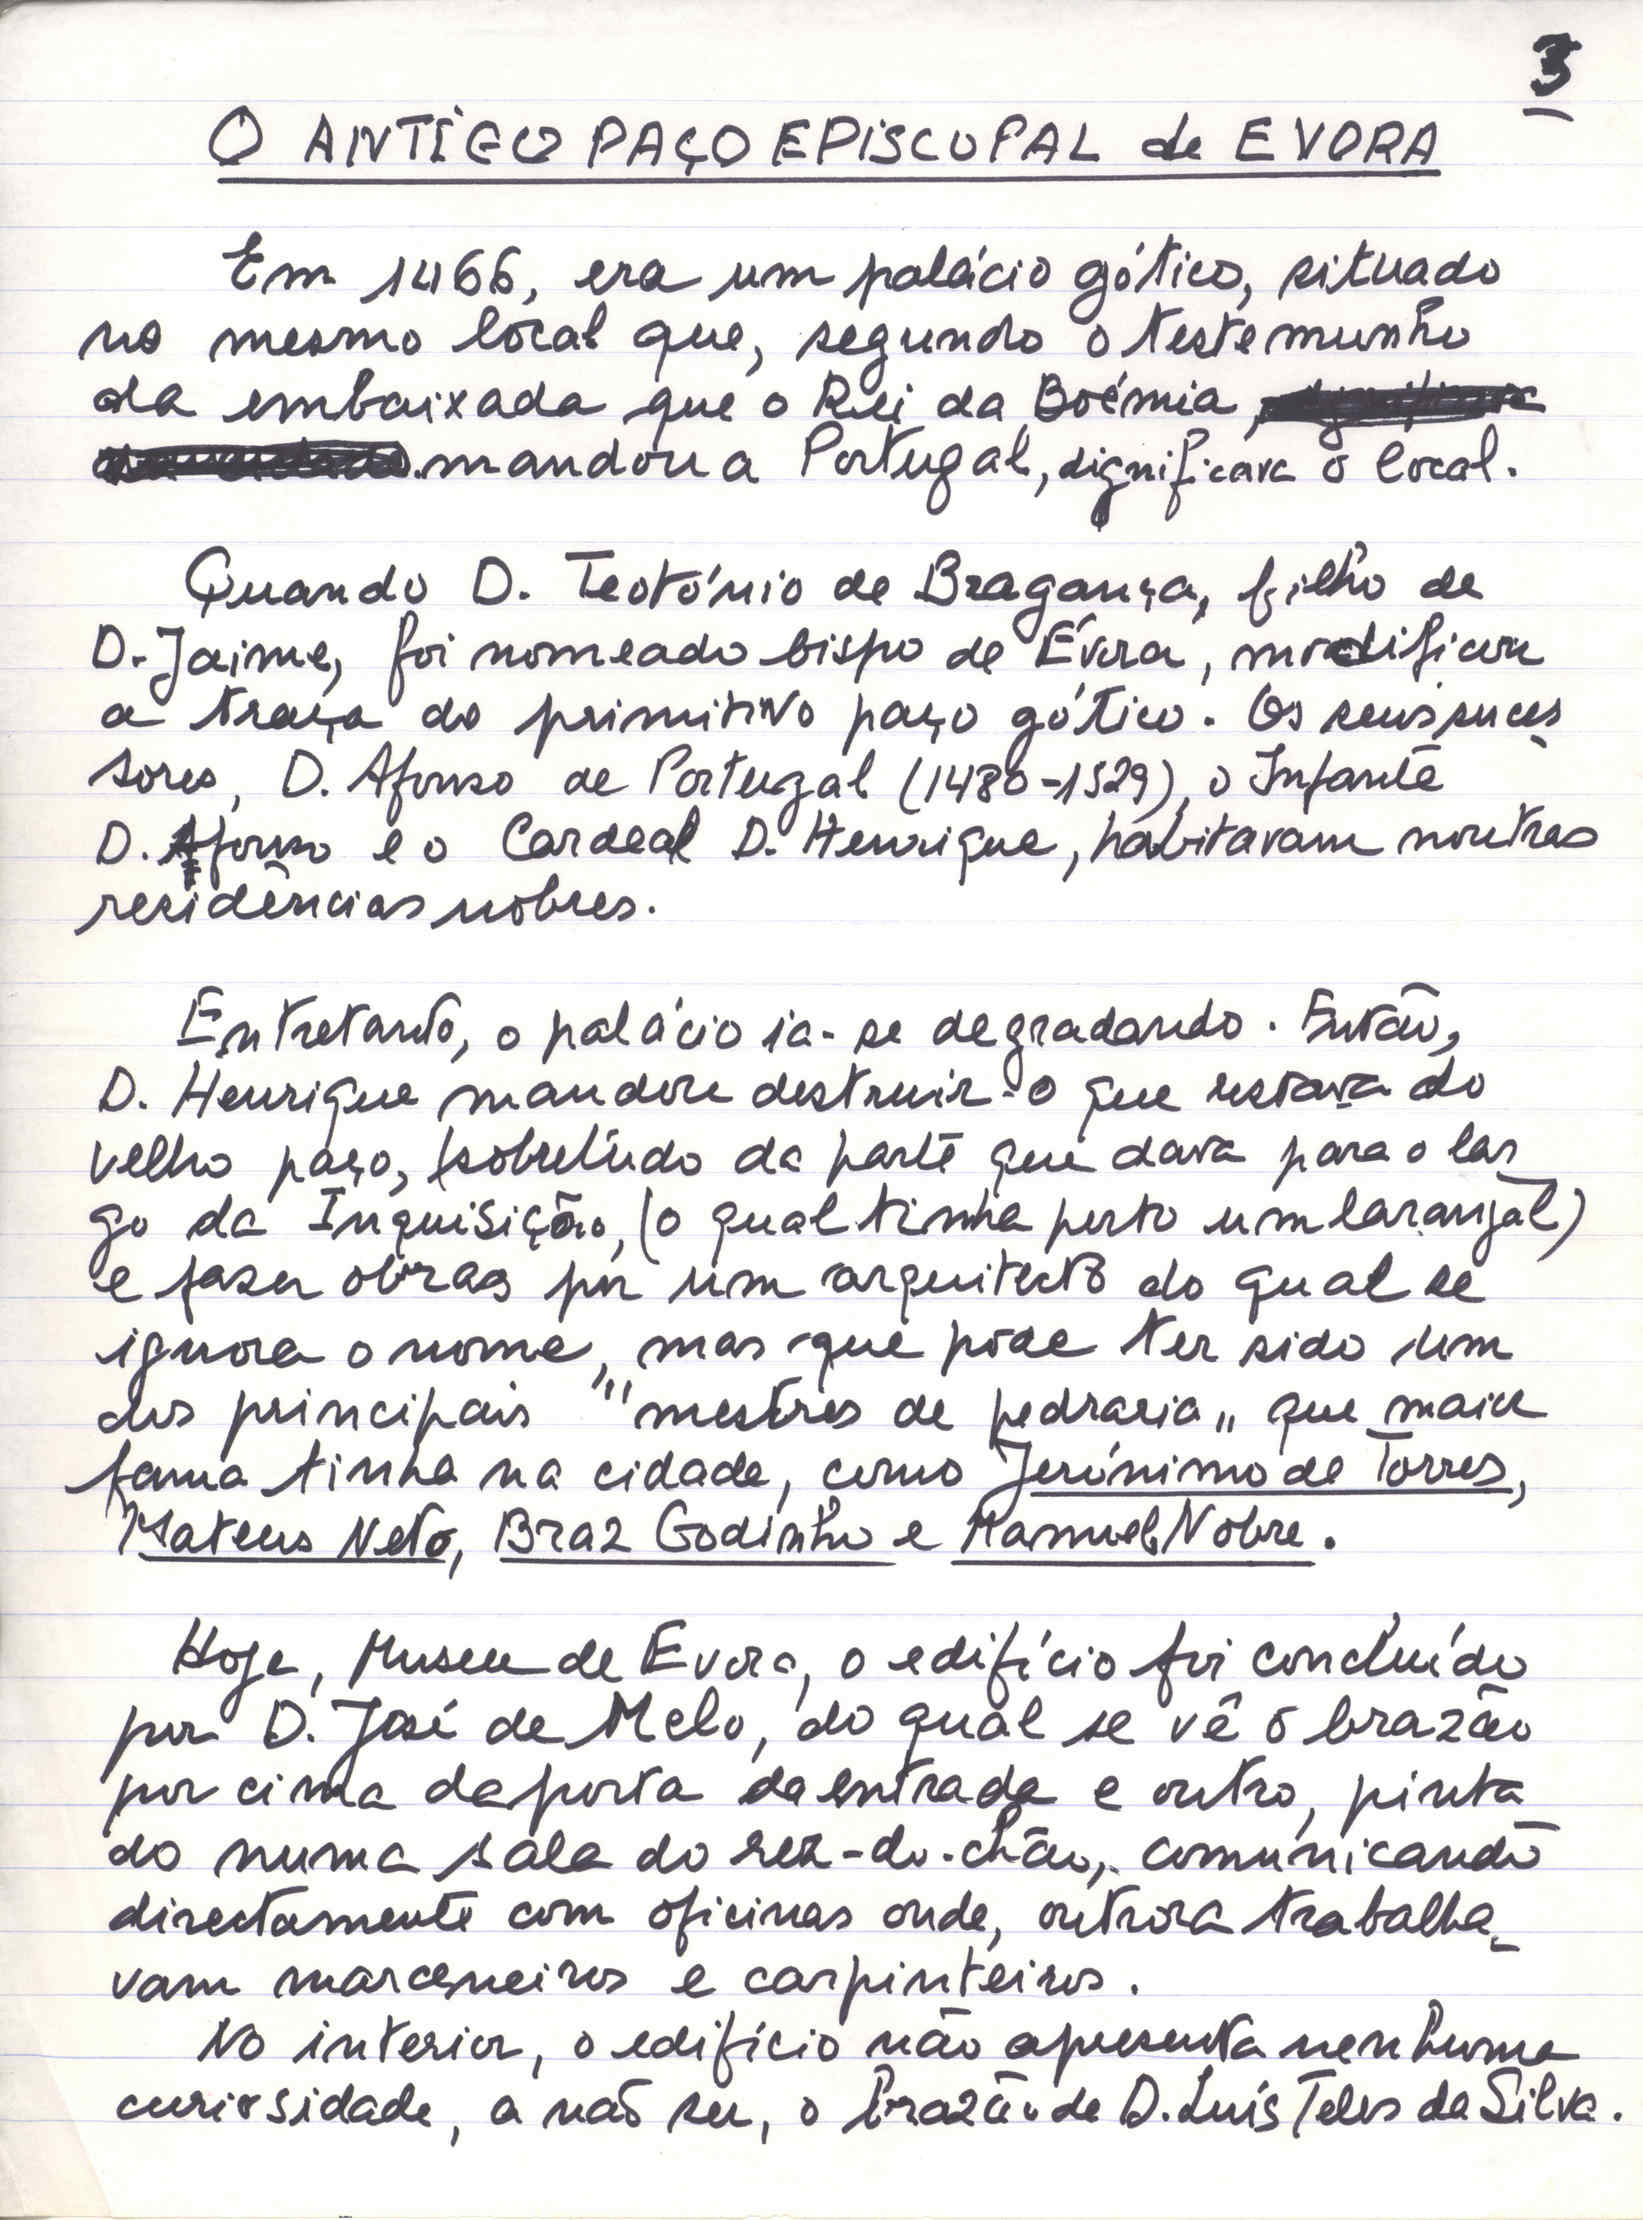 3
O ANTIGO PAÇO EPISCOPAL de EVORA
Em 1466, era um palácio gótico, situado
no mesmo local que, segundo o testemunho
da embaixada que o Rei da Boémia,
mandou a Portugal, dignificava o local.
Quando D. Teotónio de Bragança, filho de
D. Jaime, foi nomeado bispo de Évora, modificou
a traça do primitivo paço gótico. Os seus suces
sores, D. Afonso de Portugal (1480-1529), o Infante
D. Afonso e o Cardeal D. Henrique, habitavam noutras
residências nobres.
Entretanto, o palácio ia-se degradando. Então,
D. Henrique mandou destruir o que restava do
velho paço, (sobretudo da parte que dava para o lar_
go da Inquisição, (o qual tinha perto um laranjal)
e fazer obras por um arquitecto do qual se
ignora o nome, mas que pode ter sido um
dos principais "mestres de pedraria" que maior
fama tinha na cidade, como Jerónimo de Torres,
Mateus Neto, Braz Godinho e Manuel Nobre.
Hoje, Museu de Evora, o edifício foi concluído
por D. José de Melo, do qual se vê o brazão
por cima da porta da entrada e outro, pinta
do numa sala do rez-do-chão, comunicando
directamente com oficinas onde, outrora trabalha_
vam marceneiros e carpinteiros.
No interior, o edifício não apresenta nenhuma
curiosidade, a não ser, o brazão de D. Luís Teles da Silva.